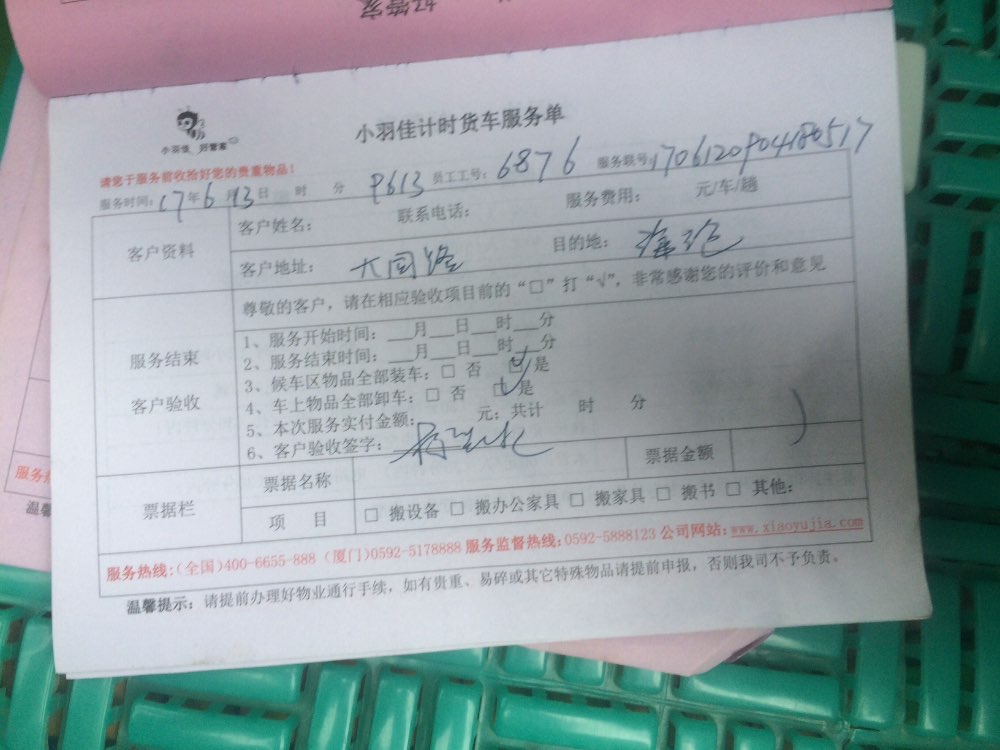 好管家
小羽佳 好管家
小羽佳计时货车服务单
请您于服务前收拾好您的贵重物品!
服务时间: 17年6月13日 时 分 P613 员工工号: 6876 服务联号: 1706120904180517
客户资料
客户姓名: 联系电话: 服务费用: 元/车/趟
客户地址: 大同路 目的地:
服务结束
客户验收
尊敬的客户，请在相应验收项目前的“□”打“√”，非常感谢您的评价和意见
1、服务开始时间: ___月___日___时___分
2、服务结束时间: ___月___日___时___分
3、候车区物品全部装车: □ 否 □ 是
4、车上物品全部卸车: □ 否 □ 是
5、本次服务实付金额: 元; 共计 时 分
6、客户验收签字:
票据栏
票据名称 票据金额
项 目 □ 搬设备 □ 搬办公家具 □ 搬家具 □ 搬书 □ 其他:
服务热线:(全国)400-6655-888 (厦门)0592-5178888 服务监督热线:0592-5888123 公司网站:www.xiaoyujia.com
温馨提示: 请提前办理好物业通行手续，如有贵重、易碎或其它特殊物品请提前申报，否则我司不予负责。